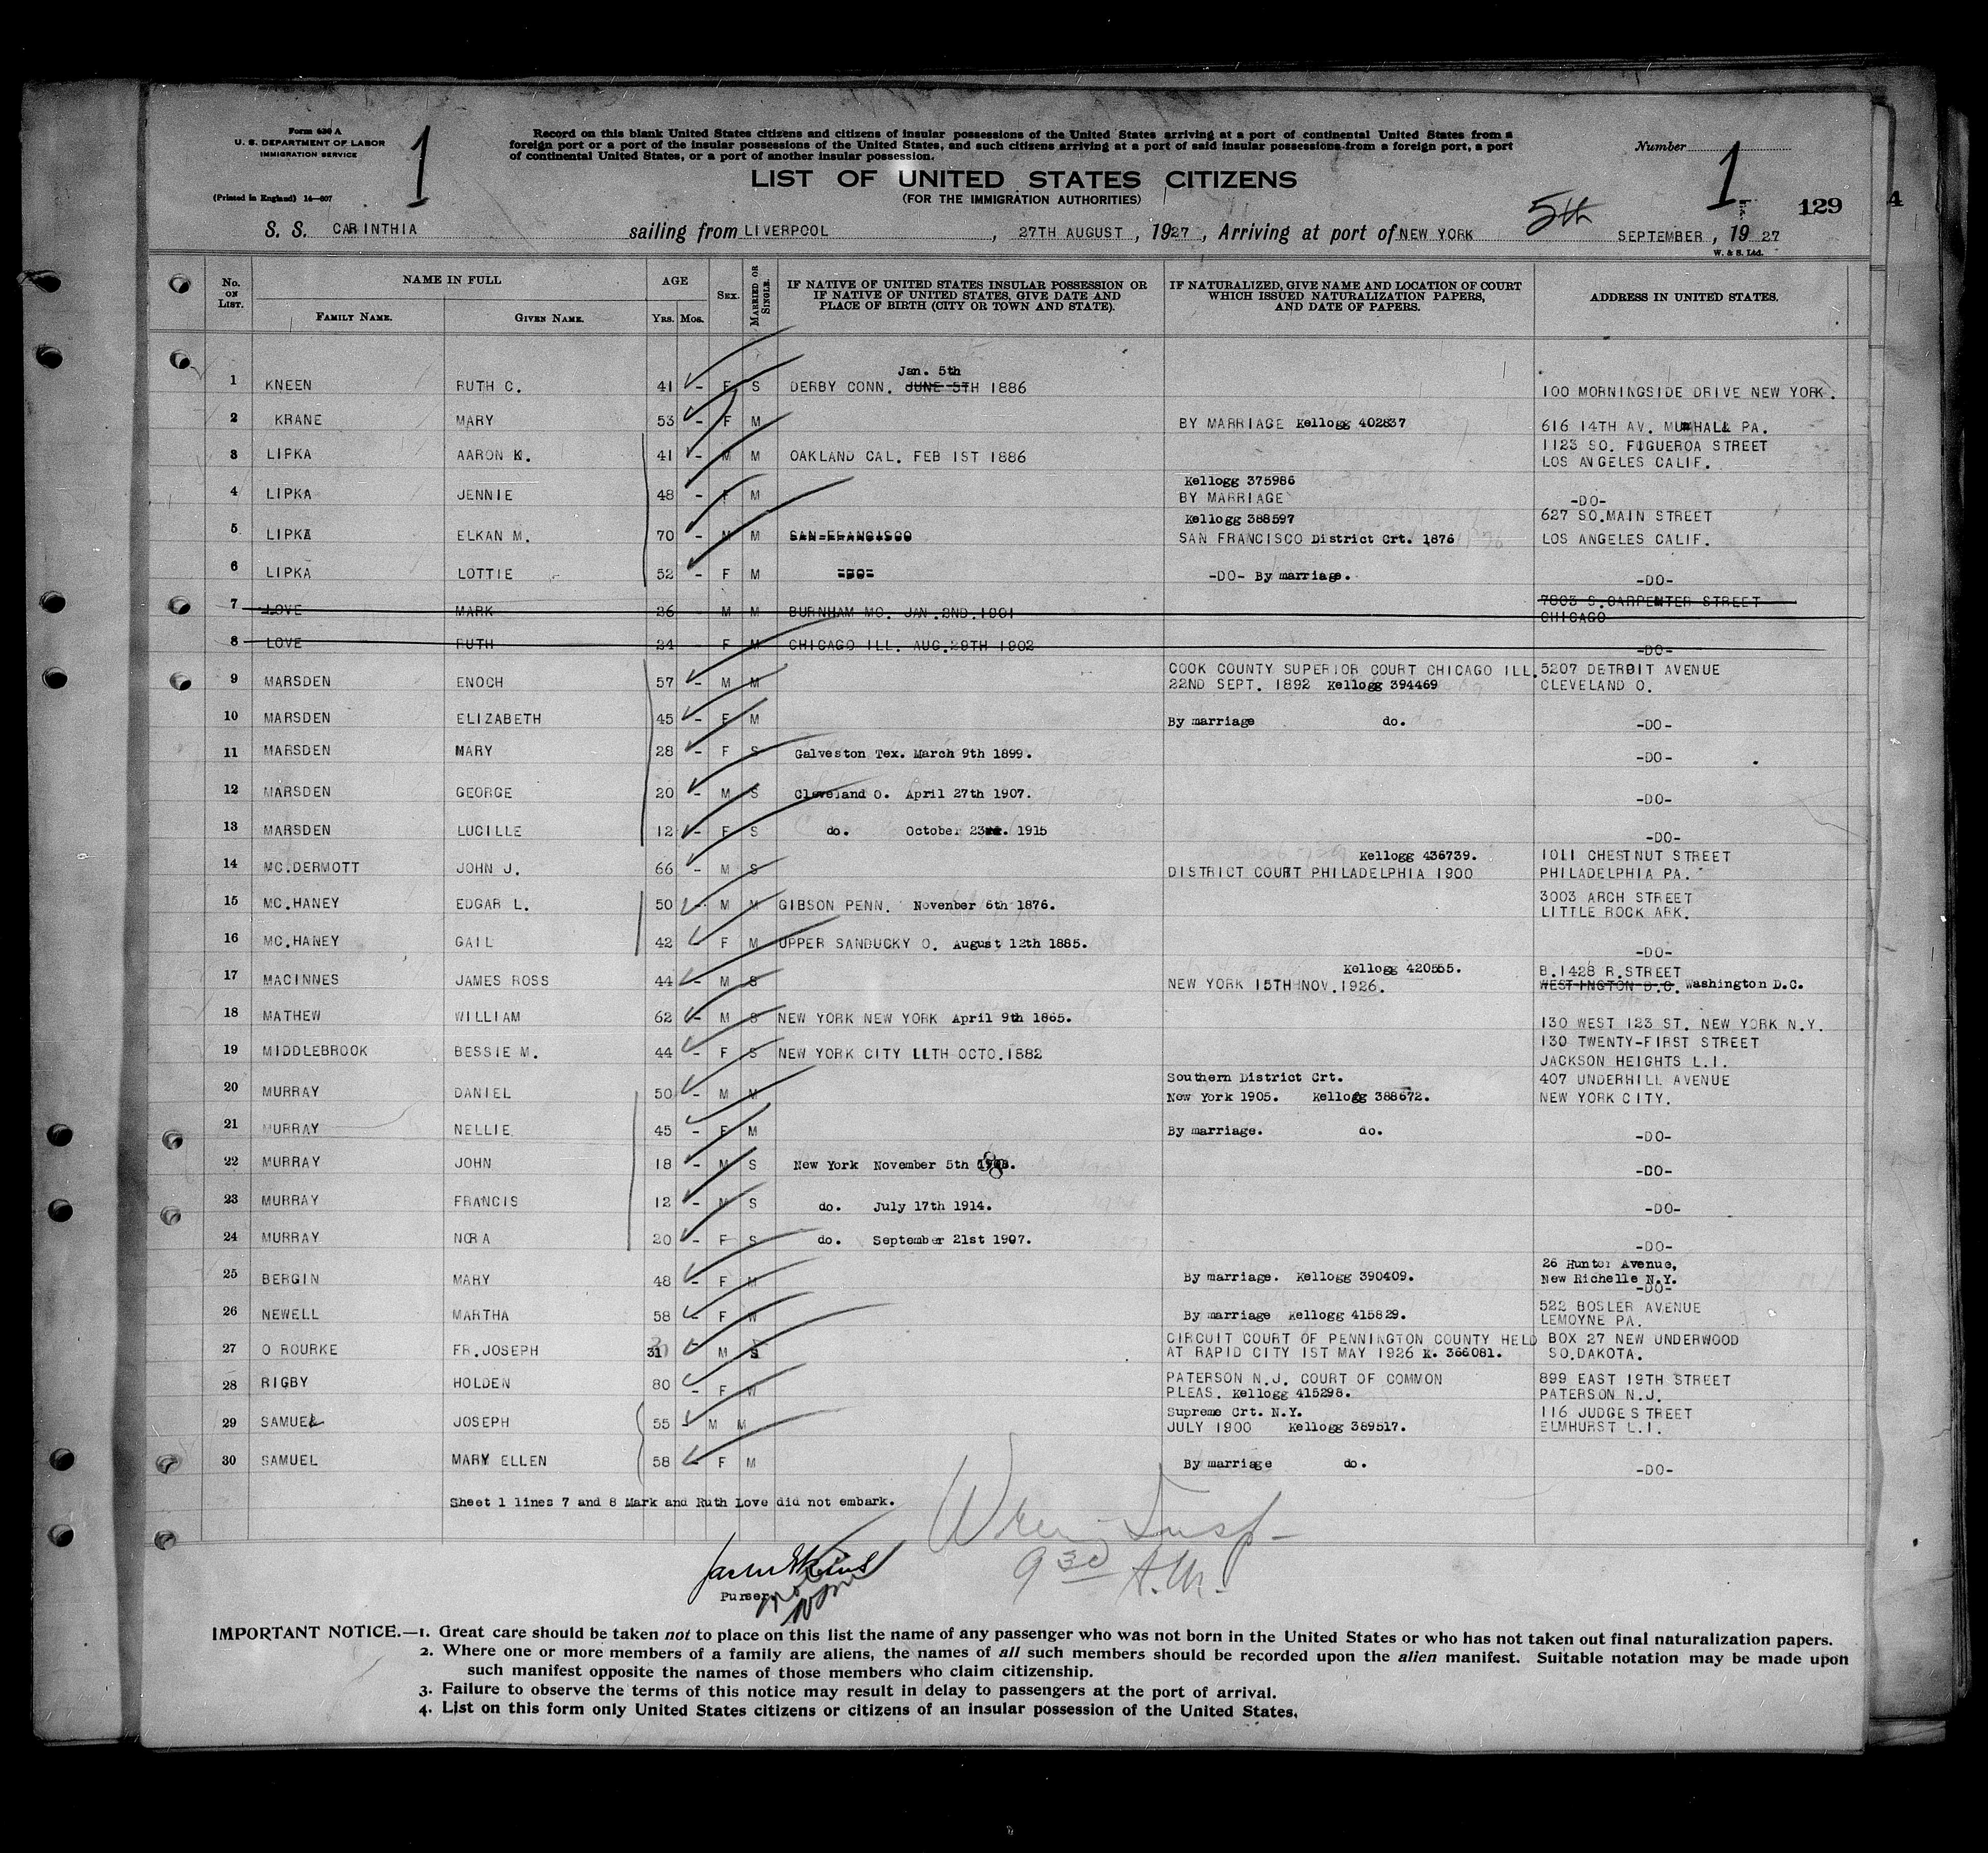 Form 630 A
U. S. DEPARTMENT OF LABOR
IMMIGRATION SERVICE
(Printed in England) 14—607
1
Record on this blank United States citizens and citizens of insular possessions of the United States arriving at a port of continental United States from a
foreign port or a port of the insular possessions of the United States, and such citizens arriving at a port of said insular possessions from a foreign port, a port
of continental United States, or a port of another insular possession.
Number 1
LIST OF UNITED STATES CITIZENS
(FOR THE IMMIGRATION AUTHORITIES)
129
4
S. S. CARINTHIA sailing from LIVERPOOL, 27TH AUGUST, 1927, Arriving at port of NEW YORK 5th SEPTEMBER, 1927
W. & S. Ltd.
No. ON LIST. NAME IN FULL FAMILY NAME. GIVEN NAME. AGE YRS. MOS. SEX. MARRIED OR SINGLE. IF NATIVE OF UNITED STATES INSULAR POSSESSION OR IF NATIVE OF UNITED STATES, GIVE DATE AND PLACE OF BIRTH (CITY OR TOWN AND STATE). IF NATURALIZED, GIVE NAME AND LOCATION OF COURT WHICH ISSUED NATURALIZATION PAPERS, AND DATE OF PAPERS. ADDRESS IN UNITED STATES.
Jan. 5th
1 KNEEN RUTH C. 41 - F S DERBY CONN. JUNE 5TH 1886 100 MORNINGSIDE DRIVE NEW YORK.
2 KRANE MARY 53 - F M BY MARRIAGE Kellogg 402837 616 14TH AV. MUNHALL PA.
3 LIPKA AARON K. 41 - M M OAKLAND CAL. FEB 1ST 1886 1123 SO. FIGUEROA STREET
LOS ANGELES CALIF.
Kellogg 375986
4 LIPKA JENNIE 48 - F M BY MARRIAGE -DO-
Kellogg 388597 627 SO.MAIN STREET
5 LIPKA ELKAN M. 70 - M M SAN FRANCISCO SAN FRANCISCO District Crt. 1876 LOS ANGELES CALIF.
6 LIPKA LOTTIE 52 - F M -DO- -DO- By marriage. -DO-
7 LOVE MARK 26 M M BURNHAM MO. JAN. 2ND. 1901 7803 S.CARPENTER STREET
CHICAGO
8 LOVE RUTH 24 F M CHICAGO ILL. AUG.29TH 1902 -DO-
COOK COUNTY SUPERIOR COURT CHICAGO ILL. 5207 DETROIT AVENUE
9 MARSDEN ENOCH 57 - M M 22ND SEPT. 1892 Kellogg 394469 CLEVELAND O.
10 MARSDEN ELIZABETH 45 - F M By marriage do. -DO-
11 MARSDEN MARY 28 - F S Galveston Tex. March 9th 1899. -DO-
12 MARSDEN GEORGE 20 - M S Cleveland O. April 27th 1907. -DO-
13 MARSDEN LUCILLE 12 - F S do. October 23rd. 1915 -DO-
Kellogg 436739. 1011 CHESTNUT STREET
14 MC.DERMOTT JOHN J. 66 - M S DISTRICT COURT PHILADELPHIA 1900 PHILADELPHIA PA.
15 MC.HANEY EDGAR L. 50 - M M GIBSON PENN. November 6th 1876. 3003 ARCH STREET
LITTLE ROCK ARK.
16 MC.HANEY GAIL 42 - F M UPPER SANDUCKY O. August 12th 1885. -DO-
Kellogg 420555. B.1428 R.STREET
17 MACINNES JAMES ROSS 44 - M S NEW YORK 15TH NOV.1926. WESTINGTON D.C. Washington D.C.
18 MATHEW WILLIAM 62 - M S NEW YORK NEW YORK April 9th 1865. 130 WEST 123 ST. NEW YORK N.Y.
19 MIDDLEBROOK BESSIE M. 44 - F S NEW YORK CITY 11TH OCTO.1882 130 TWENTY-FIRST STREET
JACKSON HEIGHTS L.I.
Southern District Crt. 407 UNDERHILL AVENUE
20 MURRAY DANIEL 50 - M M New York 1905. Kellogg 388672. NEW YORK CITY.
21 MURRAY NELLIE 45 - F M By marriage. do. -DO-
22 MURRAY JOHN 18 - M S New York November 5th -DO-
23 MURRAY FRANCIS 12 - M S do. July 17th 1914. -DO-
24 MURRAY NORA 20 - F S do. September 21st 1907. -DO-
26 Hunter Avenue,
25 BERGIN MARY 48 - F M By marriage. Kellogg 390409. New Richelle N.Y.
-DO-
26 NEWELL MARTHA 58 - F W By marriage Kellogg 415829. 522 BOSLER AVENUE
LEMOYNE PA.
CIRCUIT COURT OF PENNINGTON COUNTY HELD BOX 27 NEW UNDERWOOD
27 O ROURKE FR.JOSEPH 31 - M S AT RAPID CITY 1ST MAY 1926 K. 366081. SO.DAKOTA.
28 RIGBY HOLDEN 80 - F W PATERSON N.J. COURT OF COMMON 899 EAST 19TH STREET
PLEAS. Kellogg 415298. PATERSON N.J.
Supreme Crt. N.Y. 116 JUDGE STREET
29 SAMUEL JOSEPH 55 - M M JULY 1900 Kellogg 389517. ELMHURST L.I.
30 SAMUEL MARY ELLEN 58 - F M By marriage do. -DO-
Sheet 1 lines 7 and 8 Mark and Ruth Love did not embark.
Insp
9 30 A.M.
Purser.
IMPORTANT NOTICE.—1. Great care should be taken not to place on this list the name of any passenger who was not born in the United States or who has not taken out final naturalization papers.
2. Where one or more members of a family are aliens, the names of all such members should be recorded upon the alien manifest. Suitable notation may be made upon
such manifest opposite the names of those members who claim citizenship.
3. Failure to observe the terms of this notice may result in delay to passengers at the port of arrival.
4. List on this form only United States citizens or citizens of an insular possession of the United States.